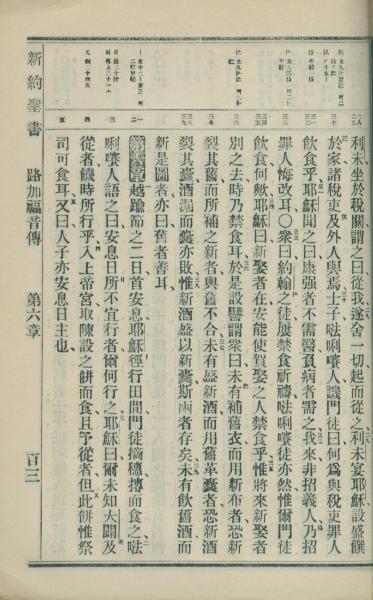 利未坐於稅關謂之曰從我遂舍一切起而從之利未宴耶穌盛饌
於家諸稅吏及外人與焉士子㗒唎㘔人譏門徒曰何爲與稅吏罪人
飲食乎耶穌聞之曰康强者不需醫負病者需之我來非招義人乃招
罪人悔改耳〇衆曰約翰之徒屢禁食祈禱㗒唎㘔徒亦然惟爾門徒
飲食何歟耶穌曰新娶者在安能使賀娶之人禁食乎惟將來新娶者
別之去時乃禁食耳於是設譬謂衆曰未有補舊衣而用新布者恐新
裂其舊而所補之新者與舊不合未有盛新酒而用舊革囊者恐新酒
裂其囊酒漏而囊亦敗惟新酒盛以新囊斯兩者存矣未有飲舊酒而
新是圖者亦曰舊者善耳
第六章越踰節之二日首安息耶穌徑行田間門徒摘穗摶而食之㗒
唎㘔人語之曰安息日所不宜行者爾何行之耶穌曰爾未知大闢及
從者饑時所行乎入上帝宮取陳設之餅而食且予從者但此餅惟祭
司可食耳又曰人子亦安息日主也
新約聖書 路加福音傳 第六章 百三